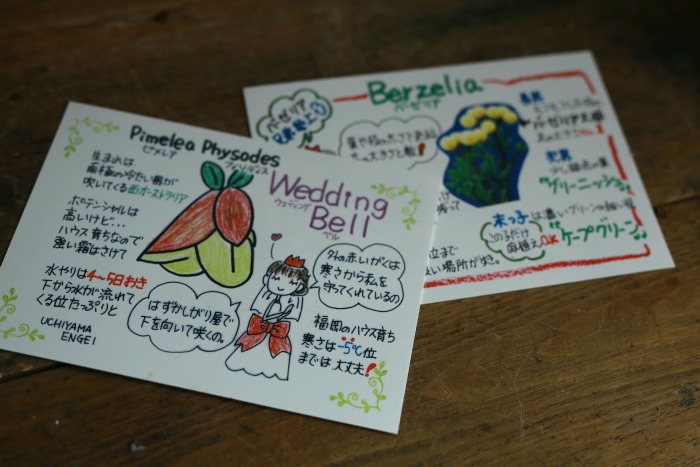 Pimelea Physodes
ピメレア フィソデス
Wedding
ウェディング
Bell
ベル
生まれは
南極の冷たい風が
吹いてくる西オーストラリア
ポテンシャルは
高いけど…
ハウス育ちなので
強い霜はさけて
水やりは4〜5日おき
下から水が流れて
くる位たっぷりと
UCHIYAMA
ENGEI
はずかしがり屋で
下を向いて咲くの。
外の赤いがくは
寒さから私を
守ってくれているの
福岡のハウス育ち
寒さは-5℃位
までは大丈夫!
Berzelia
ベルゼリア
長男
次男
"グリーニッシュ"
末っ子は濃いグリーンの
このるだけ
路植えOK
"ケープグリーン"
場所がすき。